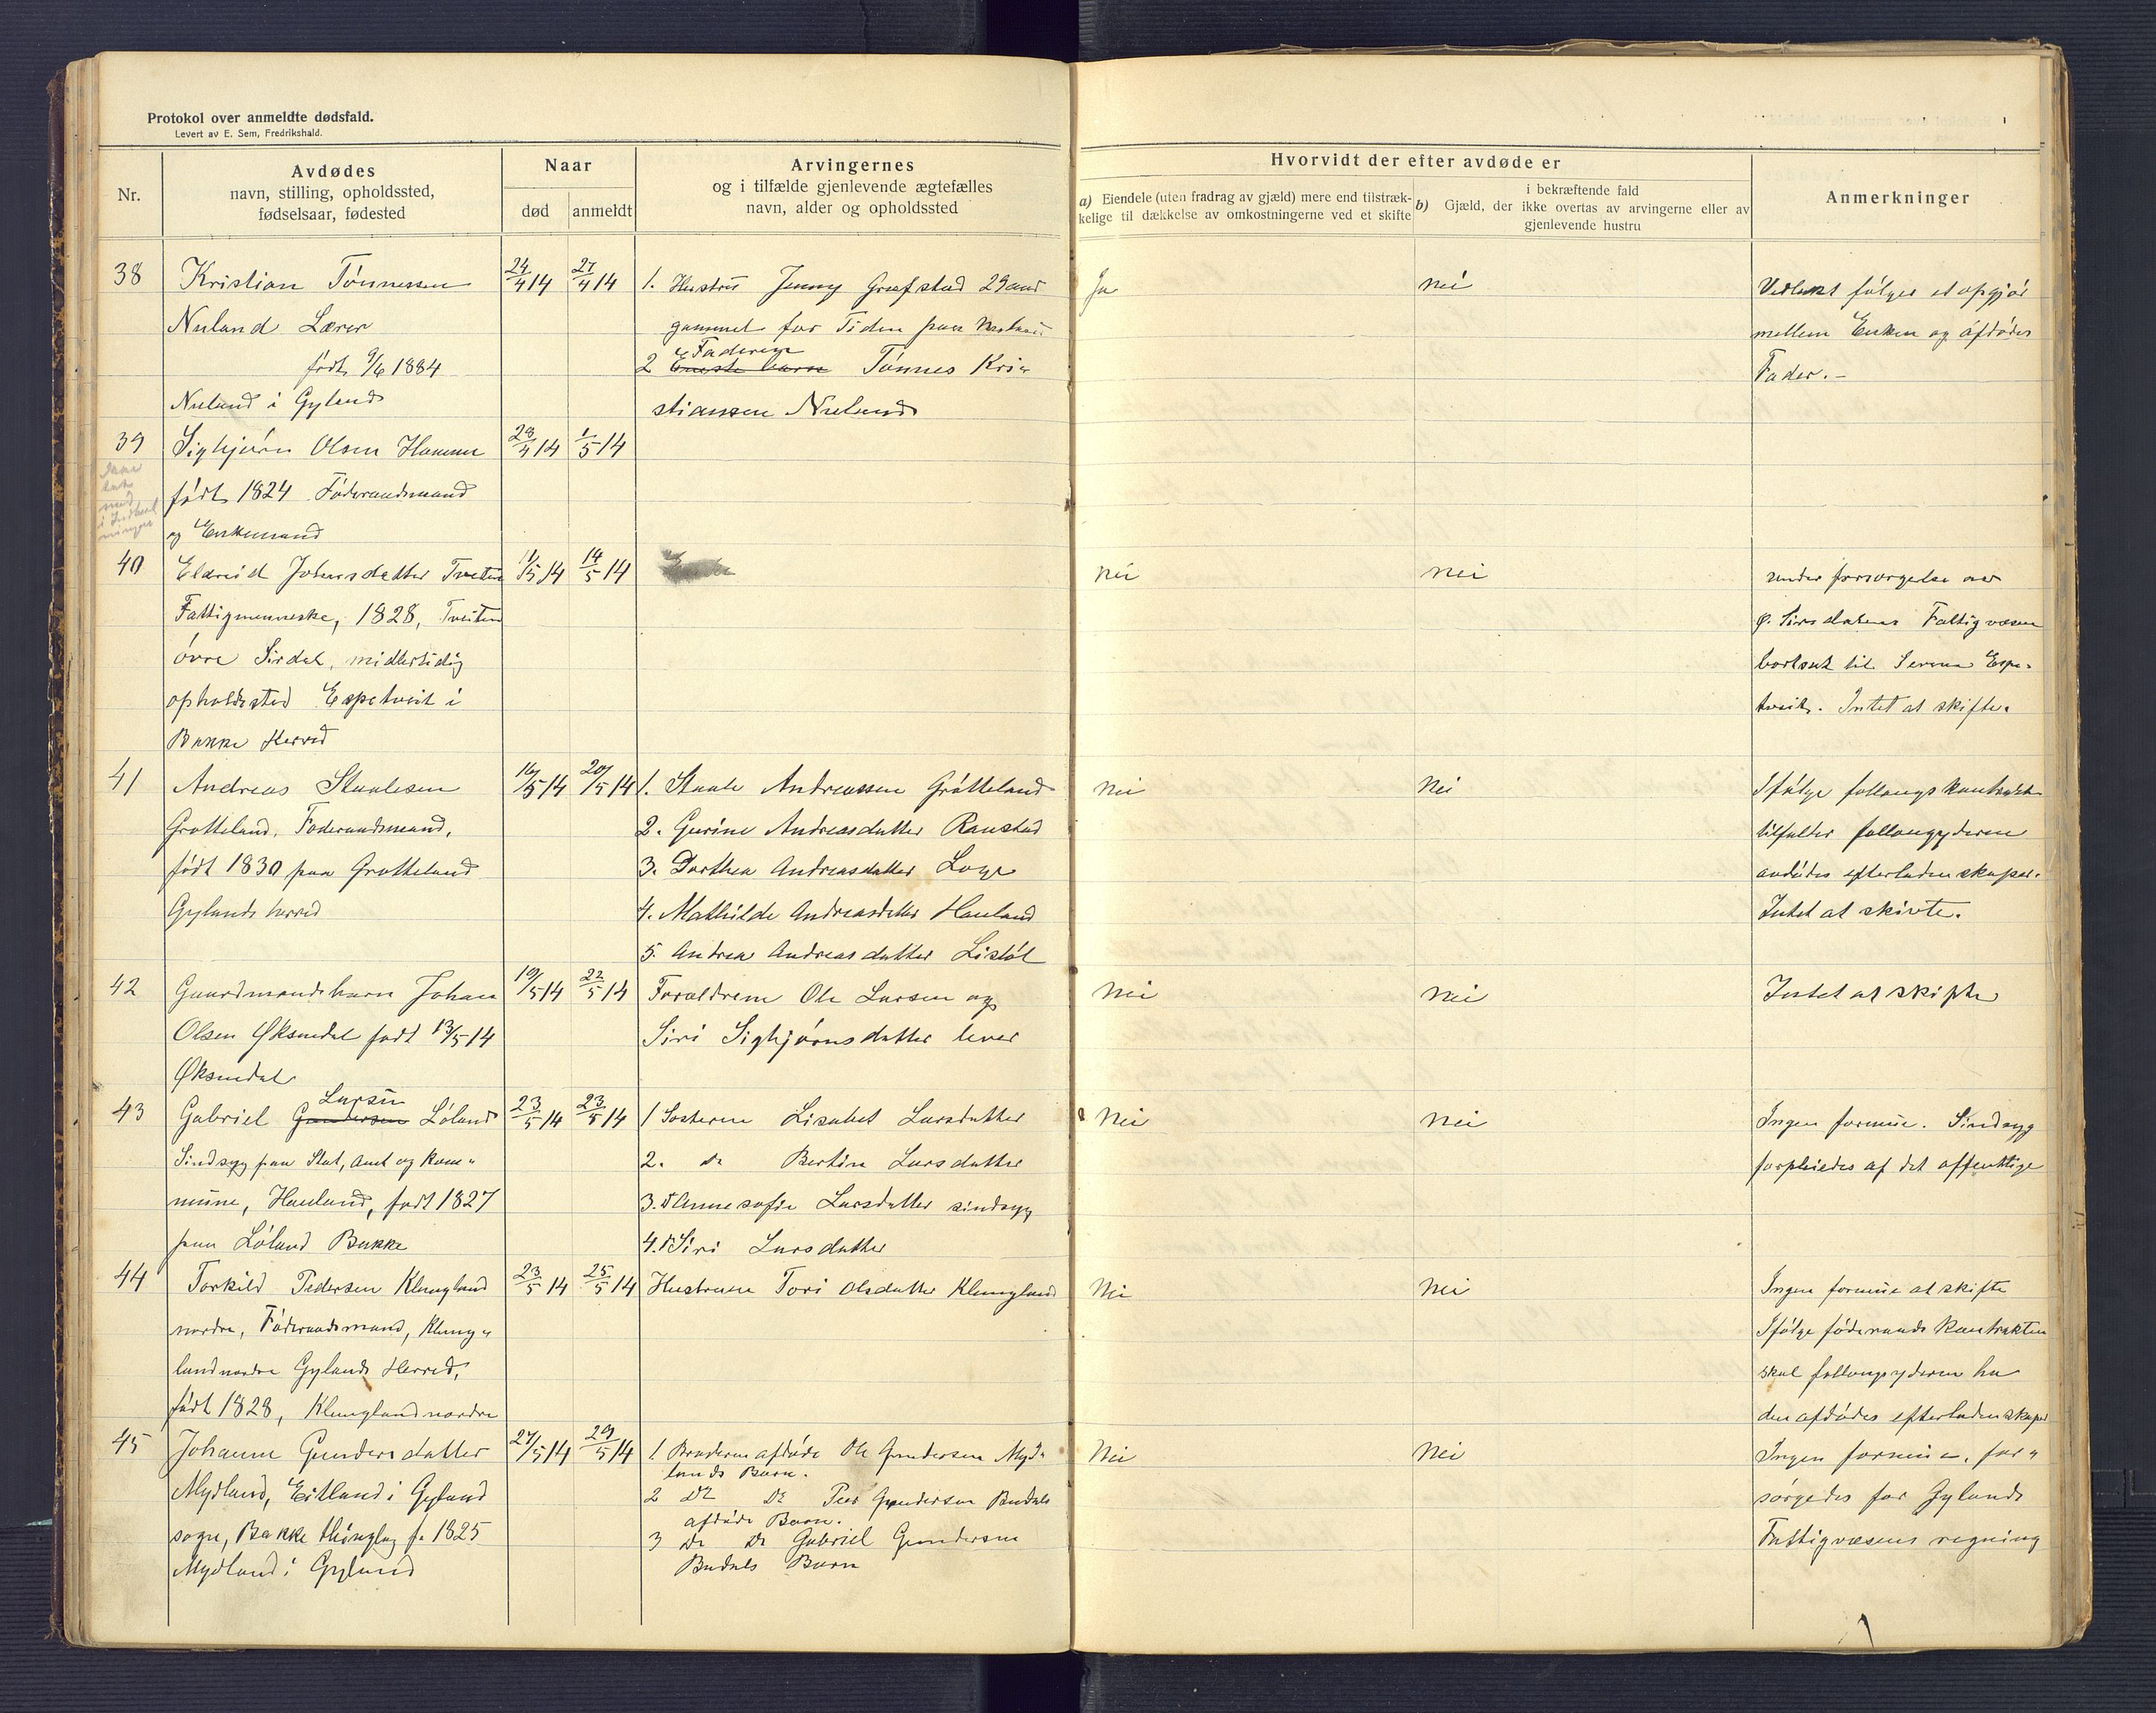 Protokol over anmeldte dødsfald.
Levert av E. Sem, Fredrikshald.
Nr.
Avdødes
navn, stilling, opholdssted,
fødselsaar, fødested
Naar
død
anmeldt
Arvingernes
og i tilfælde gjenlevende ægtefælles
navn, alder og opholdssted
Hvorvidt der efter avdøde er
a) Eiendele (uten fradrag av gjæld) mere end tilstræk-
kelige til dækkelse av omkostningerne ved et skifte
i bekræftende fald
b) Gjæld, der ikke overtas av arvingerne eller av
gjenlevende hustru
Anmerkninger
38
Kristian Tönnessen
Nuland Lærer
født 9/6 1884
Nuland i Gyland
24/4 14
27/4 14
1. Hustru Jenny Grefstad 29 aar
gammel for Tiden paa
2 Faderen
Eneste barn Tönnes Kri-
stiansen Nuland
Ja
Nei
følger et opgjør
mellem Enken og afdødes
Fader.-
39
Sigbjørn Olsen Hamme
født 1824 Föderaadsmand
og Enkemand
28/4 14
1/5 14
40
Eldreid Johnsdatter Tveiten
Fattigmenneske, 1828, Tveiten
övre Sirdal, midlertidig
opholdssted Espetveit i
Bakke Herred
11/5 14
14/5 14
Nei
Nei
under forsorgelse av
Ø. Sirdalens Fattigvæsen
bortsat til Espe-
tveit. Intet at skifte.
41
Andreas Staalesen
Grøtteland, Føderaadsmand,
født 1830 paa Grøtteland
Gylands herred
16/5 14
20/5 14
1. Staale Andreassen Grötteland
2. Gurine Andreasdatter Ranstad
3. Dorthea Andreasdatter Loge
4. Mathilde Andreasdatter Hauland
5. Andrea Andreasdatter Listöl
Nei
Nei
Ifölge follaugskontrakt
tilfalder follaugyderen
avdödes efterladenskaper.
Intet at skivte.
42
Gaardmandsbarn Johan
Olsen Øksendal født 13/5 14
Øksendal
19/5 14
22/5 14
Forældrene Ole Larsen og
Siri Sigbjörnsdatter lever
Nei
Nei
Intet at skifte
43
Larsen
Gabriel Gundersen Löland
Sindsyg paa Stat, Amt og kom-
mune, Hauland, født 1827
paa Löland Bakke
23/5 14
23/5 14
1 Søsteren Lisabet Larsdatter
2. do Bertine Larsdatter
3. do Anne sofie Larsdatter sindsyg
4. do Siri Larsdatter
Nei
Nei
Ingen formue. Sindsyg
forpleiedes af det offentlige
44
Torkild Pedersen Klungland
nordre, Föderaadsmand, Klung-
land nordre Gylands Herred,
født 1828, Klungland nordre
23/5 14
25/5 14
Hustruen Tori Olsdatter Klungland
Nei
Nei
Ingen formue at skifte
Ifölge föderaads kontrakten
skal follaugsyderen ha
den afdødes efterladenskaper
45
Johanne Gundersdatter
Mydland, Eitland i Gyland
sogn, Bakke thinglag f. 1825
Mydland i Gyland
27/5 14
29/5 14
1. Broderen afdöde Ole Gundersen Myd-
lands Barn.
2 Do Do Peer Gundersen Budals
afdöde Barn.
3 Do Do Gabriel Gundersen
Budals Barn
Nei
Nei
Ingen formue, for-
sørgedes for Gylands
Fattigvæsens regning